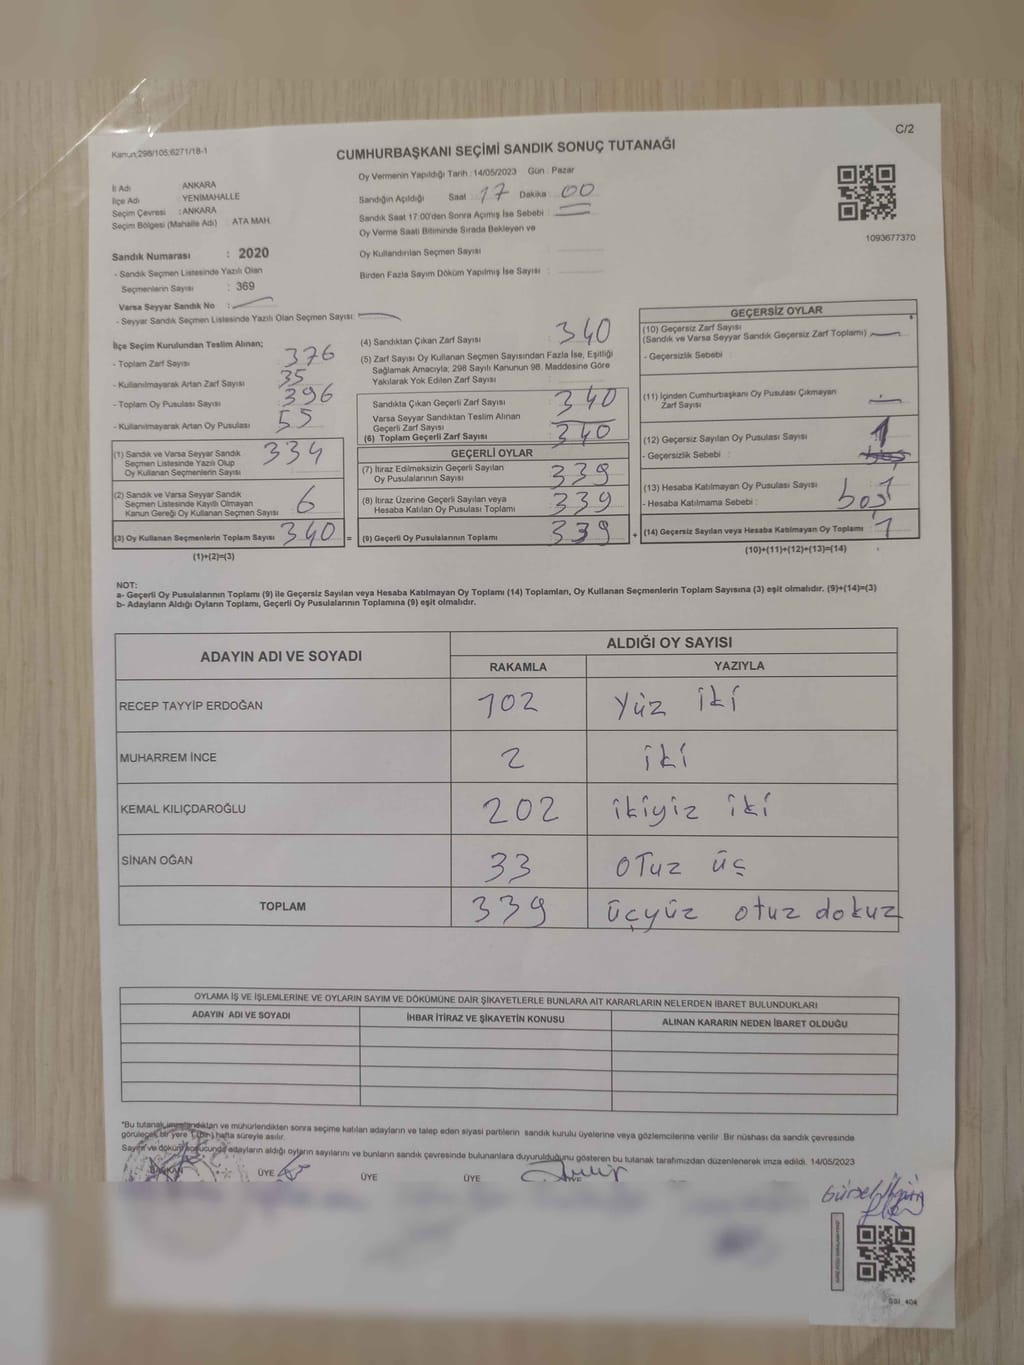 C/2
Kanun:298/105;6271/18-1
CUMHURBAŞKANI SEÇİMİ SANDIK SONUÇ TUTANAĞI
İl Adı ANKARA
İlçe Adı YENİMAHALLE
Seçim Çevresi : ANKARA
Seçim Bölgesi (Mahalle Adı) : ATA MAH.
Sandık Numarası : 2020
- Sandık Seçmen Listesinde Yazılı Olan
Seçmenlerin Sayısı : 369
Varsa Seyyar Sandık No :
- Seyyar Sandık Seçmen Listesinde Yazılı Olan Seçmen Sayısı:
Oy Vermenin Yapıldığı Tarih : 14/05/2023 Gün : Pazar
Sandığın Açıldığı Saat : 17 Dakika : 00
Sandık Saat 17:00'den Sonra Açımış İse Sebebi :
Oy Verme Saati Bitiminde Sırada Bekleyen ve
Oy Kullandırılan Seçmen Sayısı
Birden Fazla Sayım Döküm Yapılmış İse Sayısı :
1093677370
İlçe Seçim Kurulundan Teslim Alınan;
- Toplam Zarf Sayısı : 376
- Kullanılmayarak Artan Zarf Sayısı : 35
- Toplam Oy Pusulası Sayısı : 396
- Kullanılmayarak Artan Oy Pusulası : 55
(1) Sandık ve Varsa Seyyar Sandık
Seçmen Listesinde Yazılı Olup
Oy Kullanan Seçmenlerin Sayısı 334
(2) Sandık ve Varsa Seyyar Sandık
Seçmen Listesinde Kayıtlı Olmayan
Kanun Gereği Oy Kullanan Seçmen Sayısı 6
(3) Oy Kullanan Seçmenlerin Toplam Sayısı 340 =
(1)+(2)=(3)
(4) Sandıktan Çıkan Zarf Sayısı 340
(5) Zarf Sayısı Oy Kullanan Seçmen Sayısından Fazla İse, Eşitliği
Sağlamak Amacıyla; 298 Sayılı Kanunun 98. Maddesine Göre
Yakılarak Yok Edilen Zarf Sayısı
Sandıkta Çıkan Geçerli Zarf Sayısı 340
Varsa Seyyar Sandıktan Teslim Alınan
Geçerli Zarf Sayısı
(6) Toplam Geçerli Zarf Sayısı 340
GEÇERLİ OYLAR
(7) İtiraz Edilmeksizin Geçerli Sayılan
Oy Pusulalarının Sayısı 339
(8) İtiraz Üzerine Geçerli Sayılan veya
Hesaba Katılan Oy Pusulası Toplamı 339
(9) Geçerli Oy Pusulalarının Toplamı 339 +
GEÇERSİZ OYLAR
(10) Geçersiz Zarf Sayısı
(Sandık ve Varsa Seyyar Sandık Geçersiz Zarf Toplamı)
- Geçersizlik Sebebi :
(11) İçinden Cumhurbaşkanı Oy Pusulası Çıkmayan
Zarf Sayısı
(12) Geçersiz Sayılan Oy Pusulası Sayısı 1
- Geçersizlik Sebebi :
(13) Hesaba Katılmayan Oy Pusulası Sayısı : 1
- Hesaba Katılmama Sebebi : boş
(14) Geçersiz Sayılan veya Hesaba Katılmayan Oy Toplamı : 1
(10)+(11)+(12)+(13)=(14)
NOT:
a- Geçerli Oy Pusulalarının Toplamı (9) ile Geçersiz Sayılan veya Hesaba Katılmayan Oy Toplamı (14) Toplamları, Oy Kullanan Seçmenlerin Toplam Sayısına (3) eşit olmalıdır. (9)+(14)=(3)
b- Adayların Aldığı Oyların Toplamı, Geçerli Oy Pusulalarının Toplamına (9) eşit olmalıdır.
ADAYIN ADI VE SOYADI
ALDIĞI OY SAYISI
RAKAMLA YAZIYLA
RECEP TAYYİP ERDOĞAN 102 Yüz iki
MUHARREM İNCE 2 iki
KEMAL KILIÇDAROĞLU 202 ikiyiz iki
SİNAN OĞAN 33 otuz üç
TOPLAM 339 üçyüz otuz dokuz
OYLAMA İŞ VE İŞLEMLERİNE VE OYLARIN SAYIM VE DÖKÜMÜNE DAİR ŞİKAYETLERLE BUNLARA AİT KARARLARIN NELERDEN İBARET BULUNDUKLARI
ADAYIN ADI VE SOYADI İHBAR İTİRAZ VE ŞİKAYETİN KONUSU ALINAN KARARIN NEDEN İBARET OLDUĞU
"Bu tutanak imzalandıktan ve mühürlendikten sonra seçime katılan adayların ve talep eden siyasi partilerin sandık kurulu üyelerine veya gözlemcilerine verilir. Bir nüshası da sandık çevresinde
görülecek bir yere 1 (bir) hafta süreyle asılır.
Sayım ve döküm sonucunda adayların aldığı oyların sayılarını ve bunların sandık çevresinde bulunanlara duyurulduğunu gösteren bu tutanak tarafımızdan düzenlenerek imza edildi. 14/05/2023
BAŞKAN ÜYE ÜYE ÜYE
Gürsel